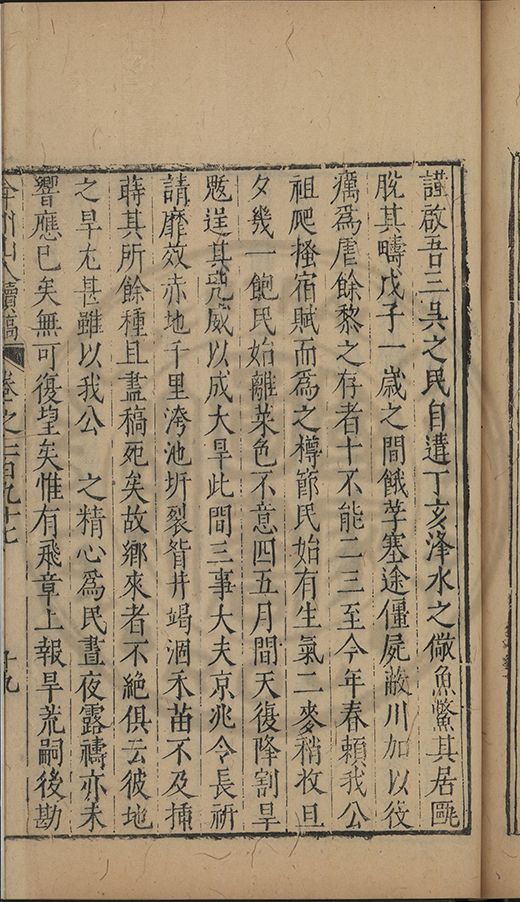 謹啟吾三吳之民自遘丁亥洚水之儆魚鱉其居颮
脫其疇戊子一歲之間餓莩塞途僵屍蔽川加以役
癘為虐餘黎之存者十不能二三至今年春賴我公
祖爬搔宿賦而為之樽節民始有生氣二麥稍收旦
夕幾一飽民始離菜色不意四五月間天復降割旱
魃逞其兇威以成大旱此間三事大夫京兆令長祈
請靡效赤地千里洿池坼裂眢井竭涸禾苗不及插
蒔其所餘種且盡稿死矣故鄉來者不絕俱云彼地
之旱尤甚雖以我公 之精心為民晝夜露禱亦未
響應已矣無可復望矣惟有飛章上報旱荒嗣後勘
弇州山人續稿 卷之一百九十七 十九